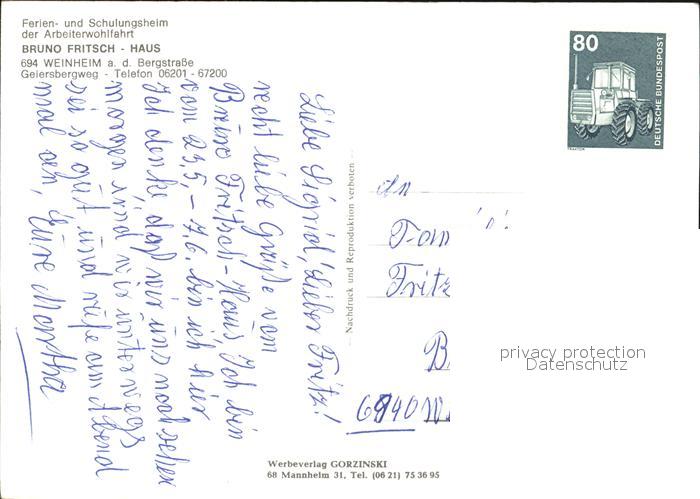 Ferien- und Schulungsheim
der Arbeiterwohlfahrt
BRUNO FRITSCH - HAUS
694 WEINHEIM a. d. Bergstraße
Geiersbergweg - Telefon 06201 - 67200
80
DEUTSCHE BUNDESPOST
TRAKTOR
Liebe Sigrid, lieber Fritz!
recht liebe Grüße vom
Bruno Fritsch-Haus. Ich bin
vom 23.5. – 7.6. bin ich hier
Ich denke daß wir uns noch sehen
morgen sind wir unterwegs
sei so gut und rufe am Abend
mal an, Eure Martha
Nachdruck und Reproduktion verboten
An
Fam
Fritz
B
6940 W
privacy protection
Datenschutz
Werbeverlag GORZINSKI
68 Mannheim 31, Tel. (06 21) 75 36 95